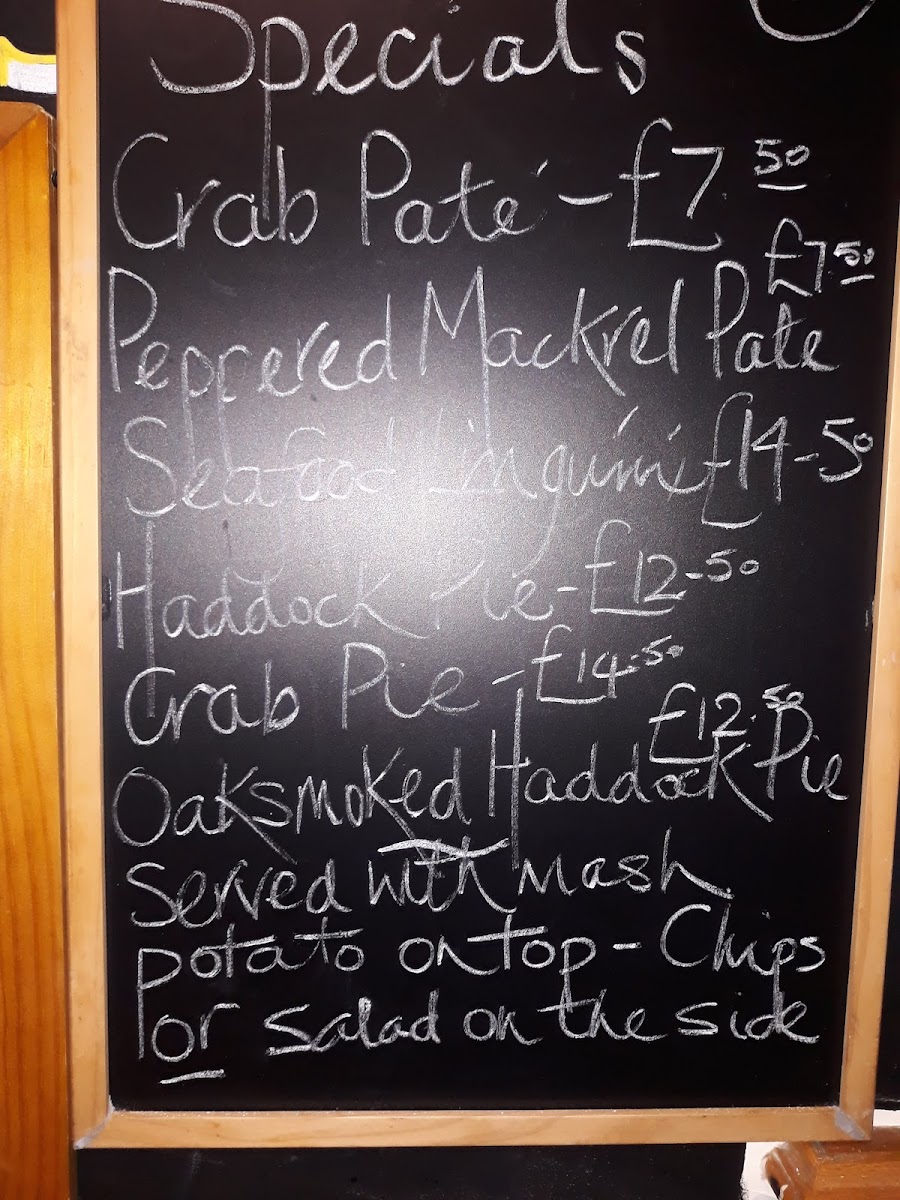 Specials
Crab Paté - £7 50
£7 50
Peppered Mackrel Pate
Seafood Linguini £14-50
Haddock Pie - £12-50
Crab Pie - £14.50
£12.50
Oaksmoked Haddock Pie
Served with mash
potato on top - Chips
or salad on the side